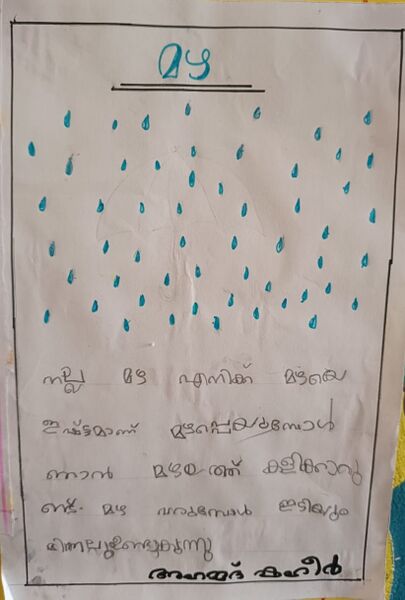 മഴ
നല്ല മഴ എനിക്ക് മഴയെ
ഇഷ്ട്ടമാണ് മഴപ്പെയ്യുമ്പോൾ
ഞാൻ മഴയത്ത് കളിക്കാറു
ണ്ട്. മഴ വരുമ്പോൾ ഇടിയും
മിന്നലുണ്ടാകുന്നു
അഹമ്മദ് ഷഹീർ